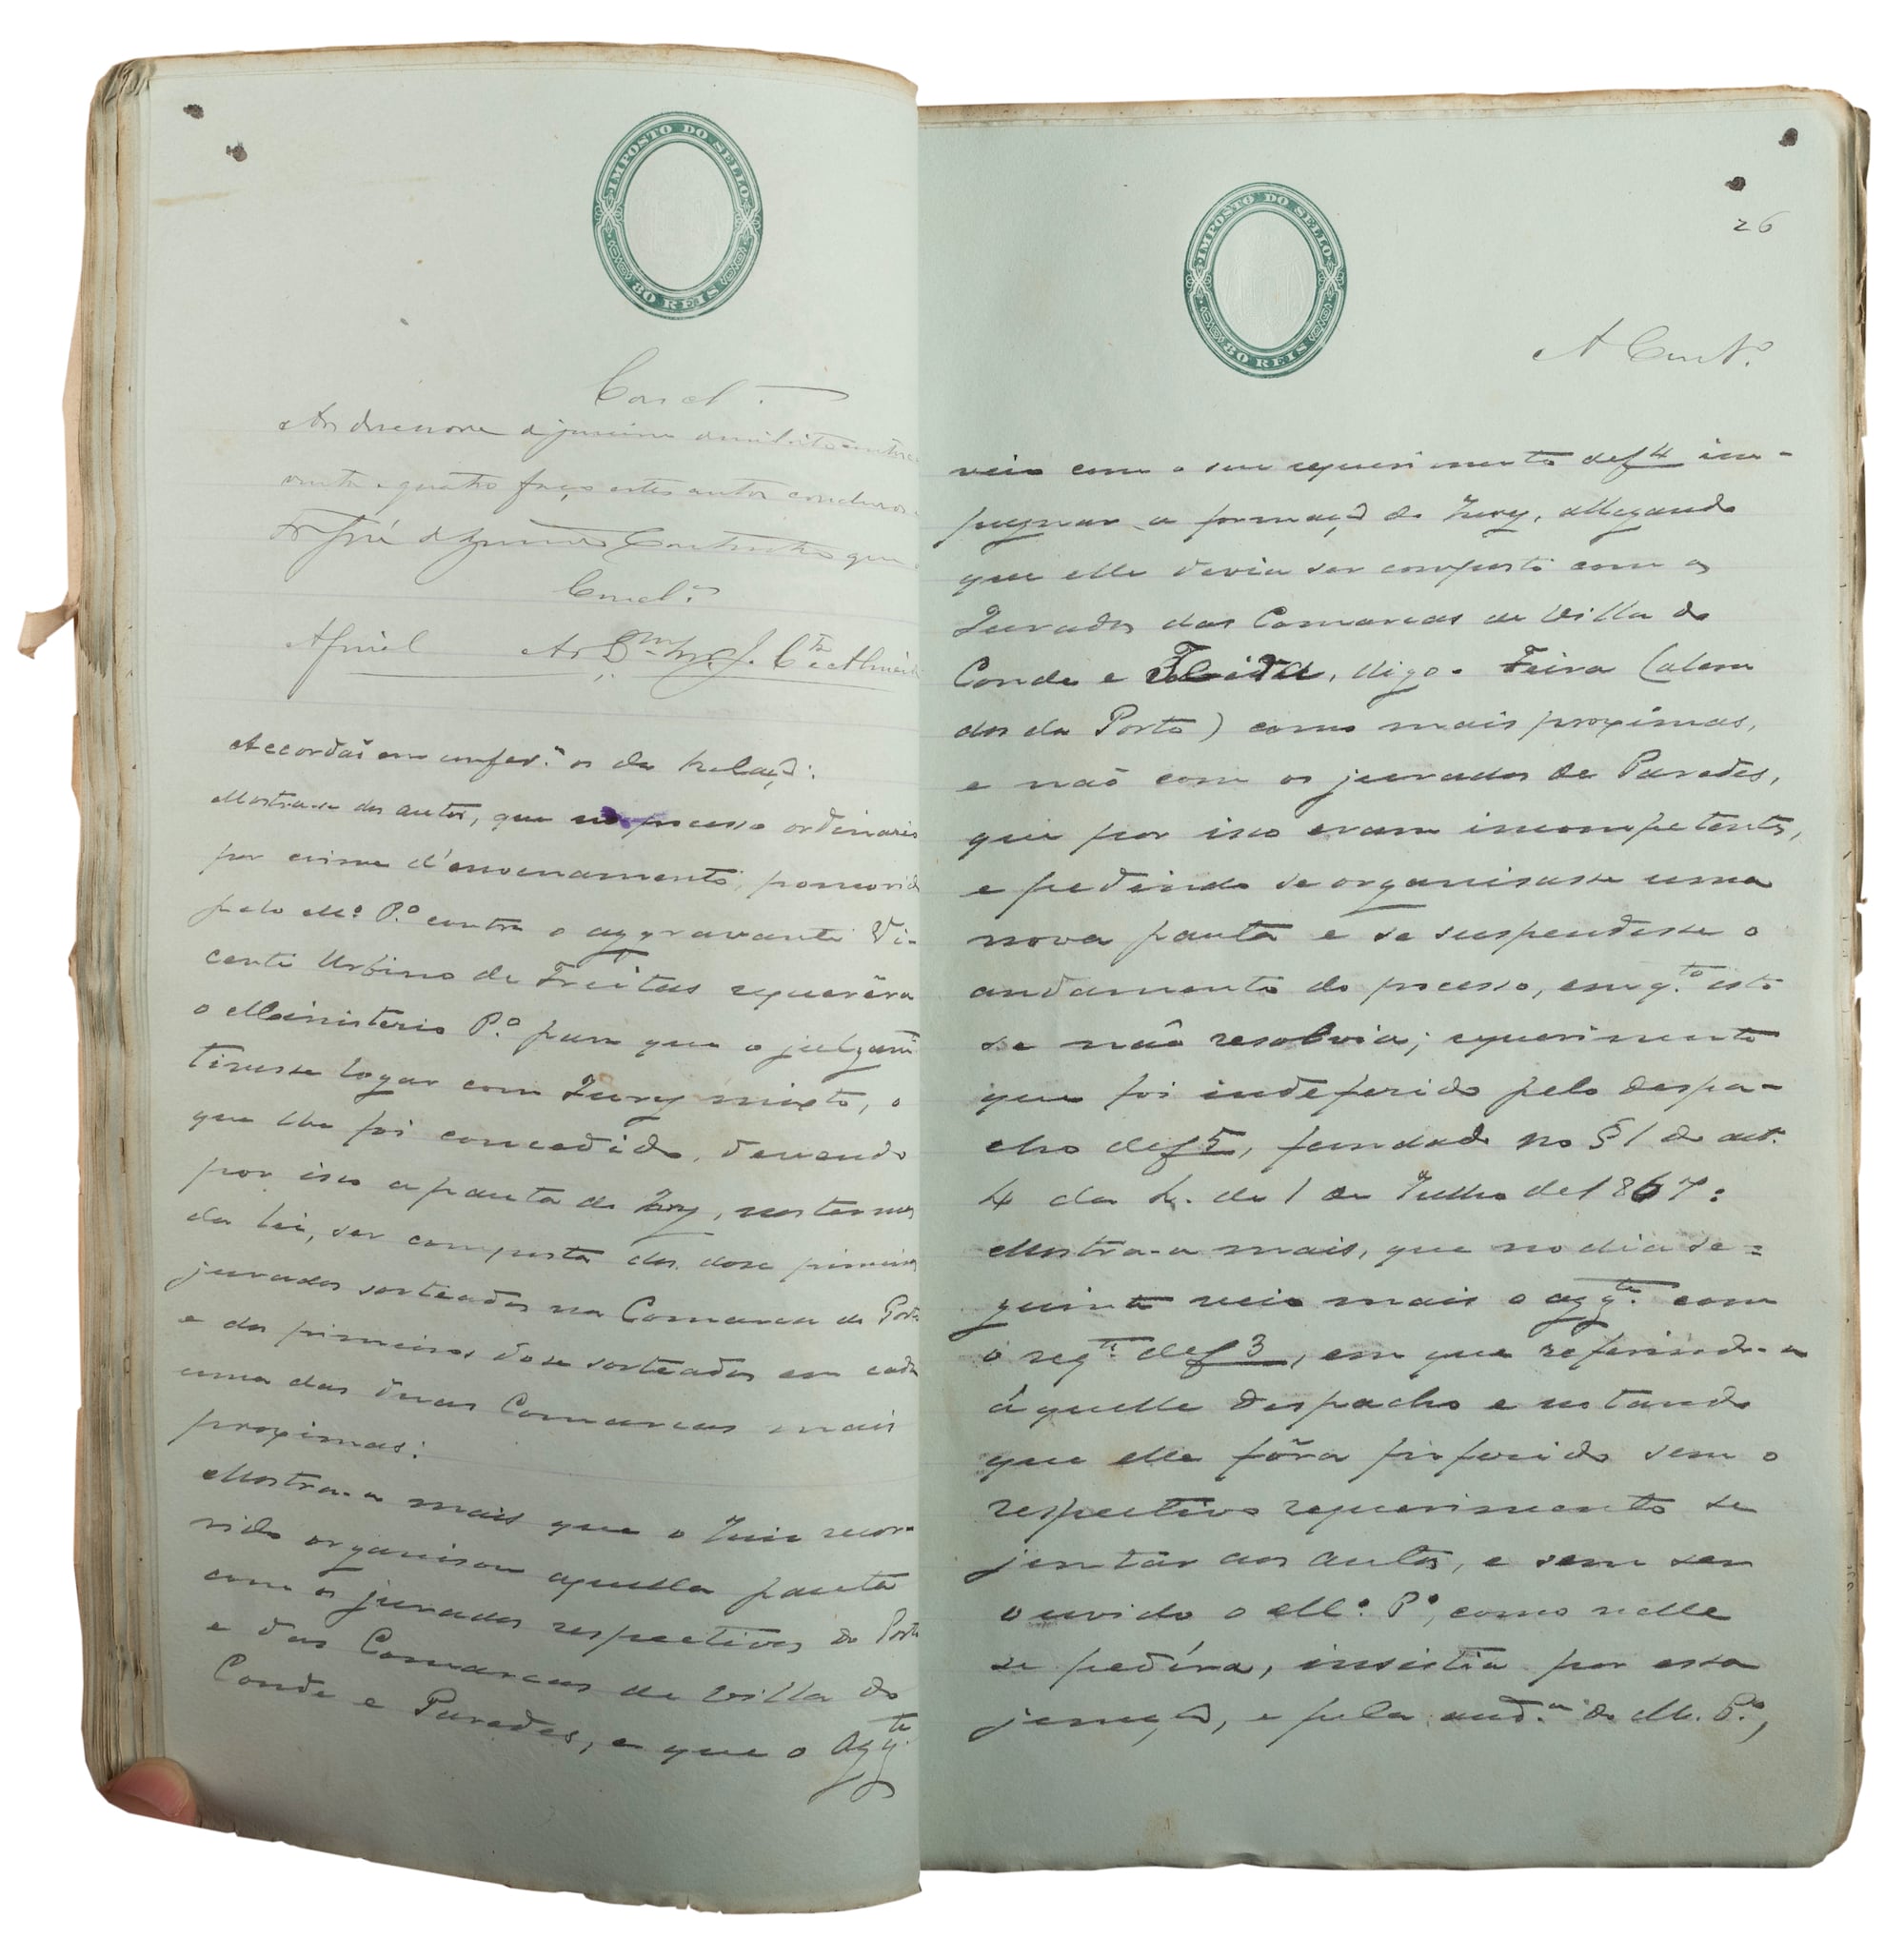 IMPOSTO DO SELLO
80 REIS
Concl.
Aos desenove de janeiro de mil oito centos e no
venta e quatro faço estes autos conclusos.
Eu José
que
Concl.os
Accordaõ em confer.ª os da Relaçaõ:
Mostra-se dos autos, que no processo ordinario
por crime d'envenamento, promovido
pelo M.º P.º contra o aggravante Vi-
cente Urbino de Freitas requerêra
o Ministerio P.º para que o julgam
tivesse logar com Jury mixto, o
que lhe foi concedido, devendo
por isso a pauta do Jury, nos termos
da Lei, ser composta dos dose primeiros
jurados sorteados na Comarca do Porto
e dos primeiros dose sorteados em cada
uma das duas Comarcas mais
proximas:
Mostra-se mais que o Juiz recor-
rido organisou aquella pauta
com os jurados respectivos do Porto
e das Comarcas de Villa do
Conde e Paredes, e que o Agg.te
IMPOSTO DO SELLO
80 REIS
26
veio com o seu requerimento de f 4 im-
pugnar a formaçaõ do Jury, allegando
que elle devia ser composto com os
Jurados das Comarcas de Villa do
Conde e digo. Feira (alem
dos do Porto) como mais proximas,
e naõ com os jurados de Paredes,
que por isso eram incompetentes,
e pedindo se organisasse uma
nova pauta e se suspendesse o
andamento do processo, emq.to isto
se naõ resolvia; requerimento
que foi indeferido pelo despa-
cho de f 5, fundado no § 1 do art.
4 da L. de 1 de Julho de 1867:
Mostra-se mais, que no dia se-
guinte veio mais o agg.te com
o req.to de f 3, em que referindo-se
áquelle despacho e notando
que elle fôra proferido sem o
respectivo requerimento se
juntar aos autos, e sem ser
ouvido o M.º P.º, como nelle
se pedíra, insistia por essa
junçaõ, e pela aud.ª do M. P.º,